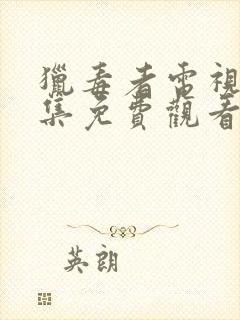 獵毒者電視
集免費觀看
英朗